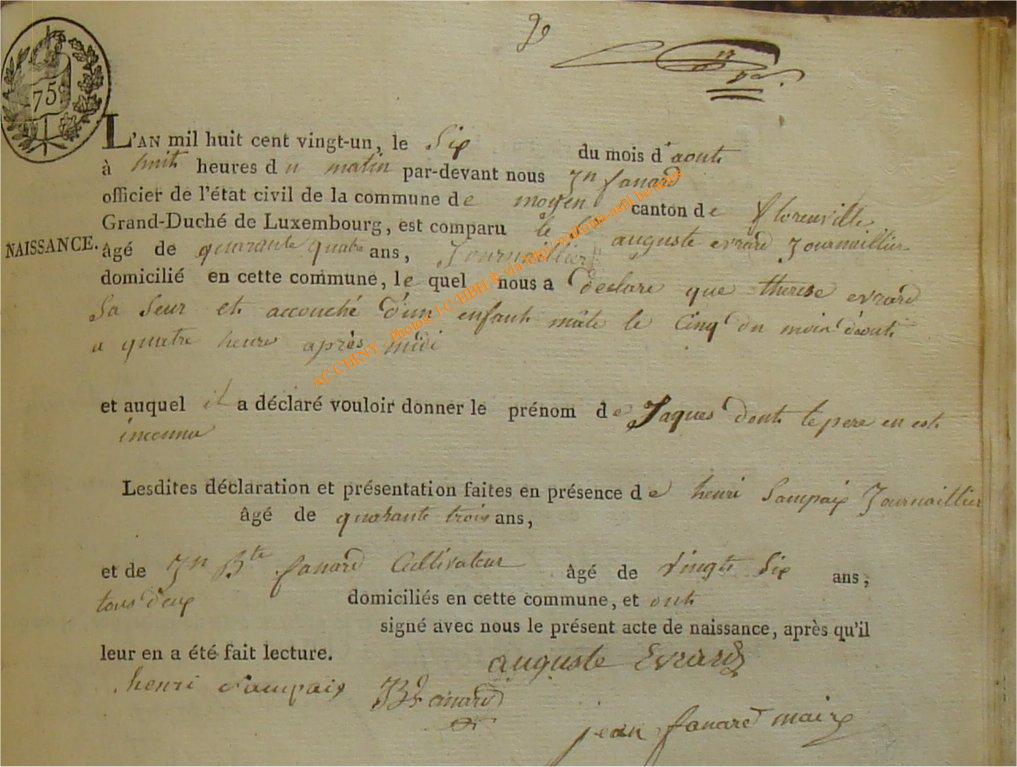 75
L'AN mil huit cent vingt-un, le Six du mois d'aout
à huit heures du matin par-devant nous Jn fanard
officier de l'état civil de la commune de moyen canton de florenville
Grand-Duché de Luxembourg, est comparu le auguste evrard Journaillier
NAISSANCE. âgé de quarante quatre ans, Journaillier
domicilié en cette commune, le quel nous a déclaré que therese evrard
Sa Seur et accouché d'un enfant mâle le Cinq du moi d'éout
a quatre heure après midi
AC CHINY
et auquel il a déclaré vouloir donner le prénom de Jaques dont le pere en est
inconnu
Lesdites déclaration et présentation faites en présence de henri Sampaix Journaillier
âgé de quarante trois ans,
et de Jn Bte fanard Cultivateur âgé de vingt Six ans,
tous deux domiciliés en cette commune, et ont
signé avec nous le présent acte de naissance, après qu'il
leur en a été fait lecture. auguste Evrard
henri Sampaix JB fanard
jean fanard maire